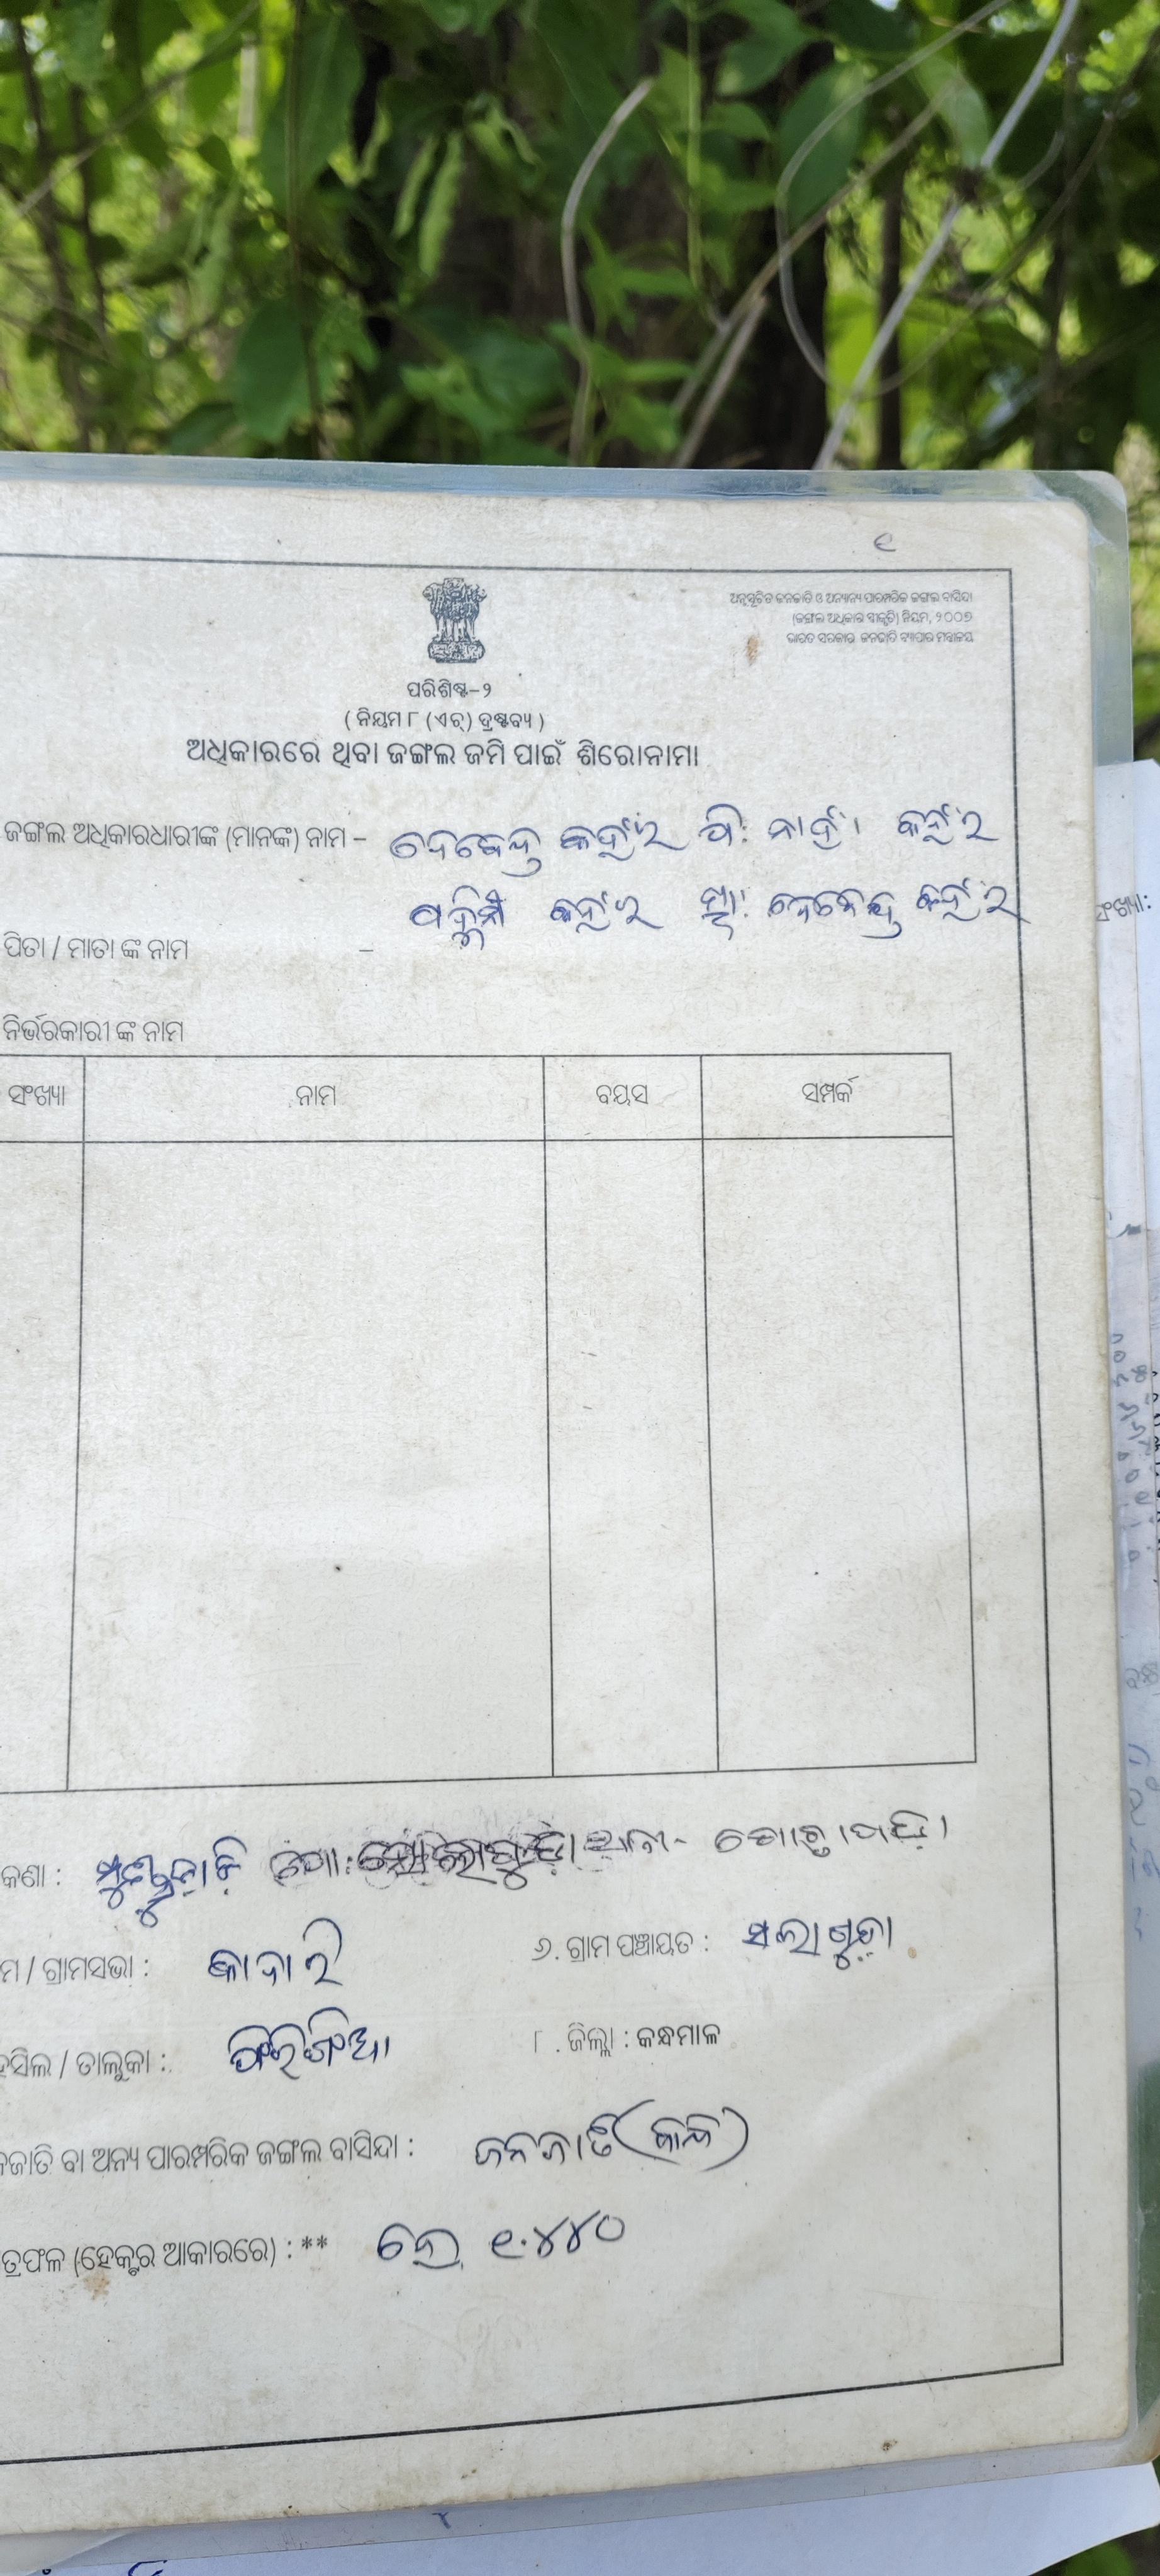 ୧
ଅନୁସୂଚିତ ଜନଜାତି ଓ ଅନ୍ୟାନ୍ୟ ପାରମ୍ପରିକ ଜଙ୍ଗଲ ବାସିନ୍ଦା
(ଜଙ୍ଗଲ ଅଧିକାର ସ୍ୱୀକୃତି) ନିୟମ, ୨୦୦୭
ଭାରତ ସରକାର ଜନଜାତି ବ୍ୟାପାର ମନ୍ତ୍ରାଳୟ
ପରିଶିଷ୍ଟ-୨
( ନିୟମ ୮ (ଏଚ୍) ଦ୍ରଷ୍ଟବ୍ୟ )
ଅଧିକାରରେ ଥିବା ଜଙ୍ଗଲ ଜମି ପାଇଁ ଶିରୋନାମା
ଜଙ୍ଗଲ ଅଧିକାରଧାରୀଙ୍କ (ମାନଙ୍କ) ନାମ - ଦେବେନ୍ଦ୍ର କହଁର ପି: କହଁର
କହଁର ସ୍ୱା: ଦେବେନ୍ଦ୍ର କହଁର
ପିତା / ମାତା ଙ୍କ ନାମ -
ନିର୍ଭରକାରୀ ଙ୍କ ନାମ
ସଂଖ୍ୟା ନାମ ବୟସ ସମ୍ପର୍କ
କଣା :
ମ / ଗ୍ରାମସଭା : କାଦାରି ୬. ଗ୍ରାମ ପଞ୍ଚାୟତ : ସଲାଗୁଡା
ହସିଲ / ତାଲୁକା : ଫିରିଙ୍ଗିଆ ୮ . ଜିଲ୍ଲା : କନ୍ଧମାଳ
ନଜାତି ବା ଅନ୍ୟ ପାରମ୍ପରିକ ଜଙ୍ଗଲ ବାସିନ୍ଦା : ଜନଜାତି (କନ୍ଧ)
ତ୍ରଫଳ (ହେକ୍ଟର ଆକାରରେ) : ** ହେ. ୧.୪୪୦
ସଂଖ୍ୟା: